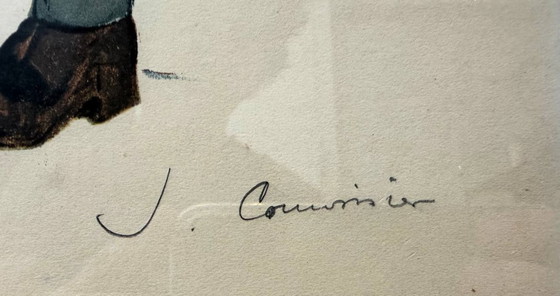 J. Courvoisier